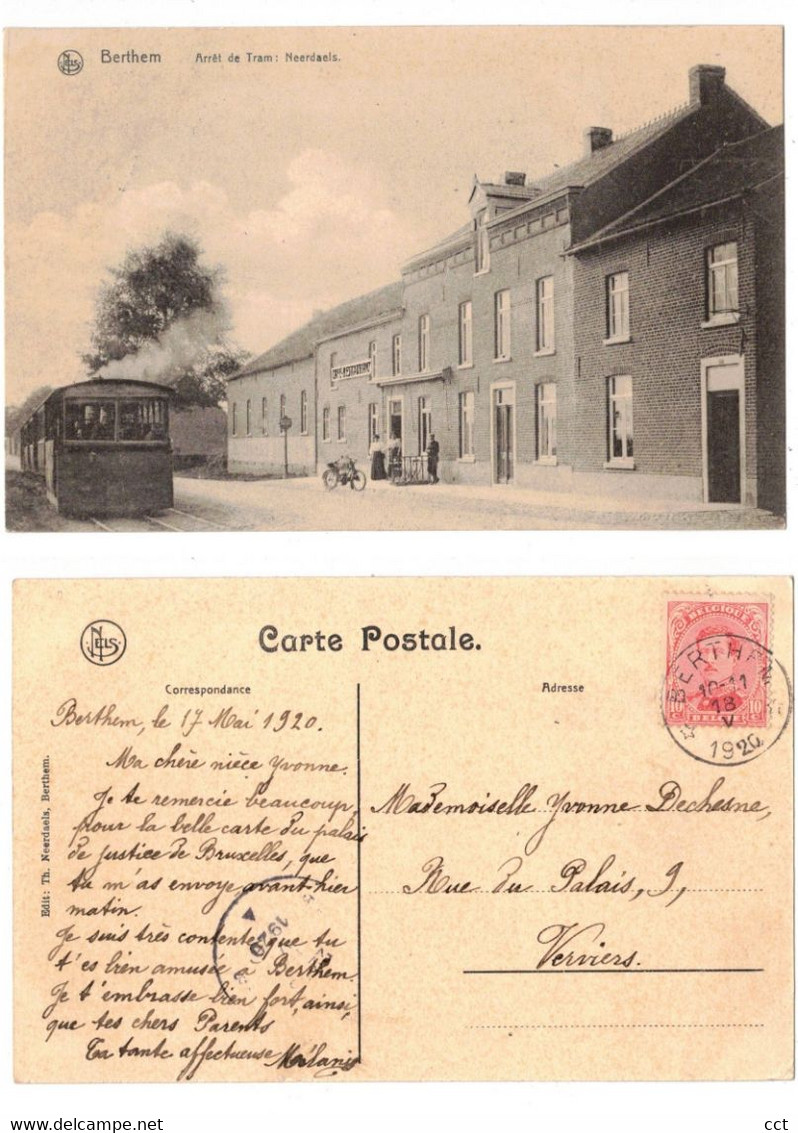 NELS
Berthem Arrêt de Tram: Neerdaels.
NELS
Carte Postale.
BELGIQUE
10 c 10 c
BELGIE
BERTHEM
10-11
18
V
1920
Correspondance
Adresse
Berthem, le 17 Mai 1920.
Ma chère nièce Yvonne.
Je te remercie beaucoup,
pour la belle carte du palais
de justice de Bruxelles, que
tu m'as envoye avant-hier
matin.
Je suis très contente, que tu
t'es bien amusée à Berthem.
Je t'embrasse bien fort, ainsi,
que tes chers Parents
Ta tante affectueuse Mélanie
1920
Mademoiselle Yvonne Dechesne,
Rue du Palais, 9,
Verviers.
Edit: Th. Neerdaels, Berthem.
delcampe.net
cct